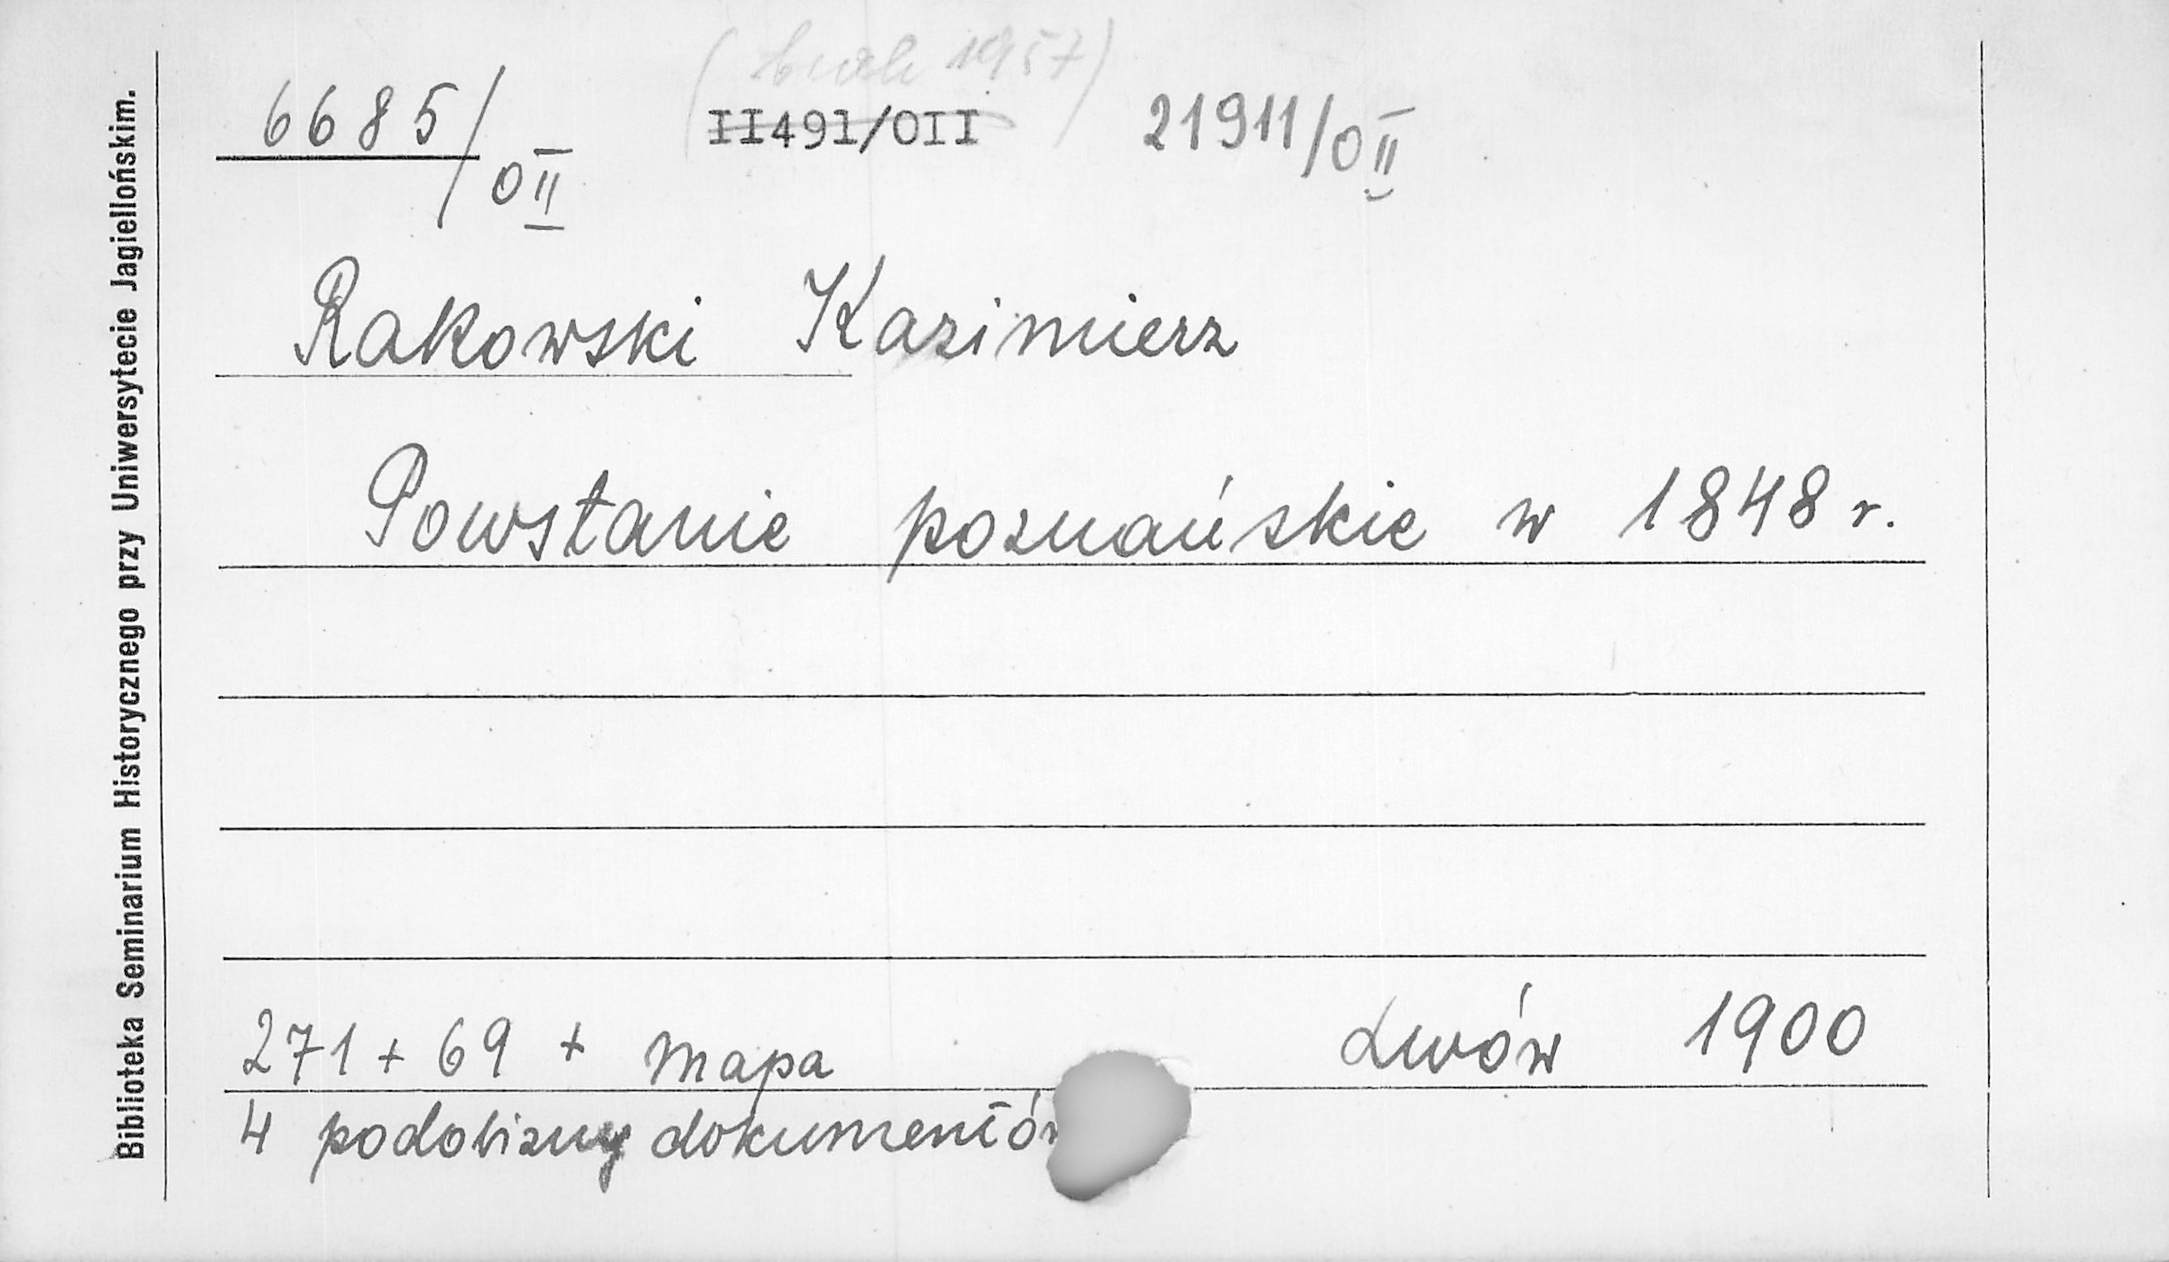 (brak 1957)
6685/OII II491/OII 21911/OII
Rakowski Kazimierz
Powstanie poznańskie w 1848 r.
271 + 69 + mapa Lwów 1900
4 podobizny dokumentów
Biblioteka Seminarium Historycznego przy Uniwersytecie Jagiellońskim.